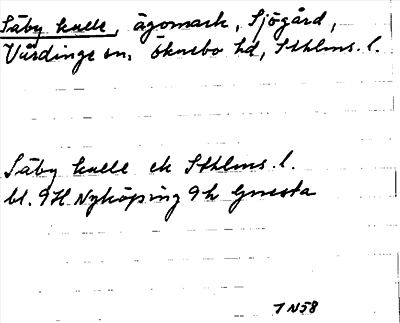 Säby kulle, ägomark, Sjögård,
Vårdinge sn, Öknebo hd, Sthlms. l.
Säby kulle ek Sthlms. l.
bl. 9H Nyköping 9h Gnesta
7 N58